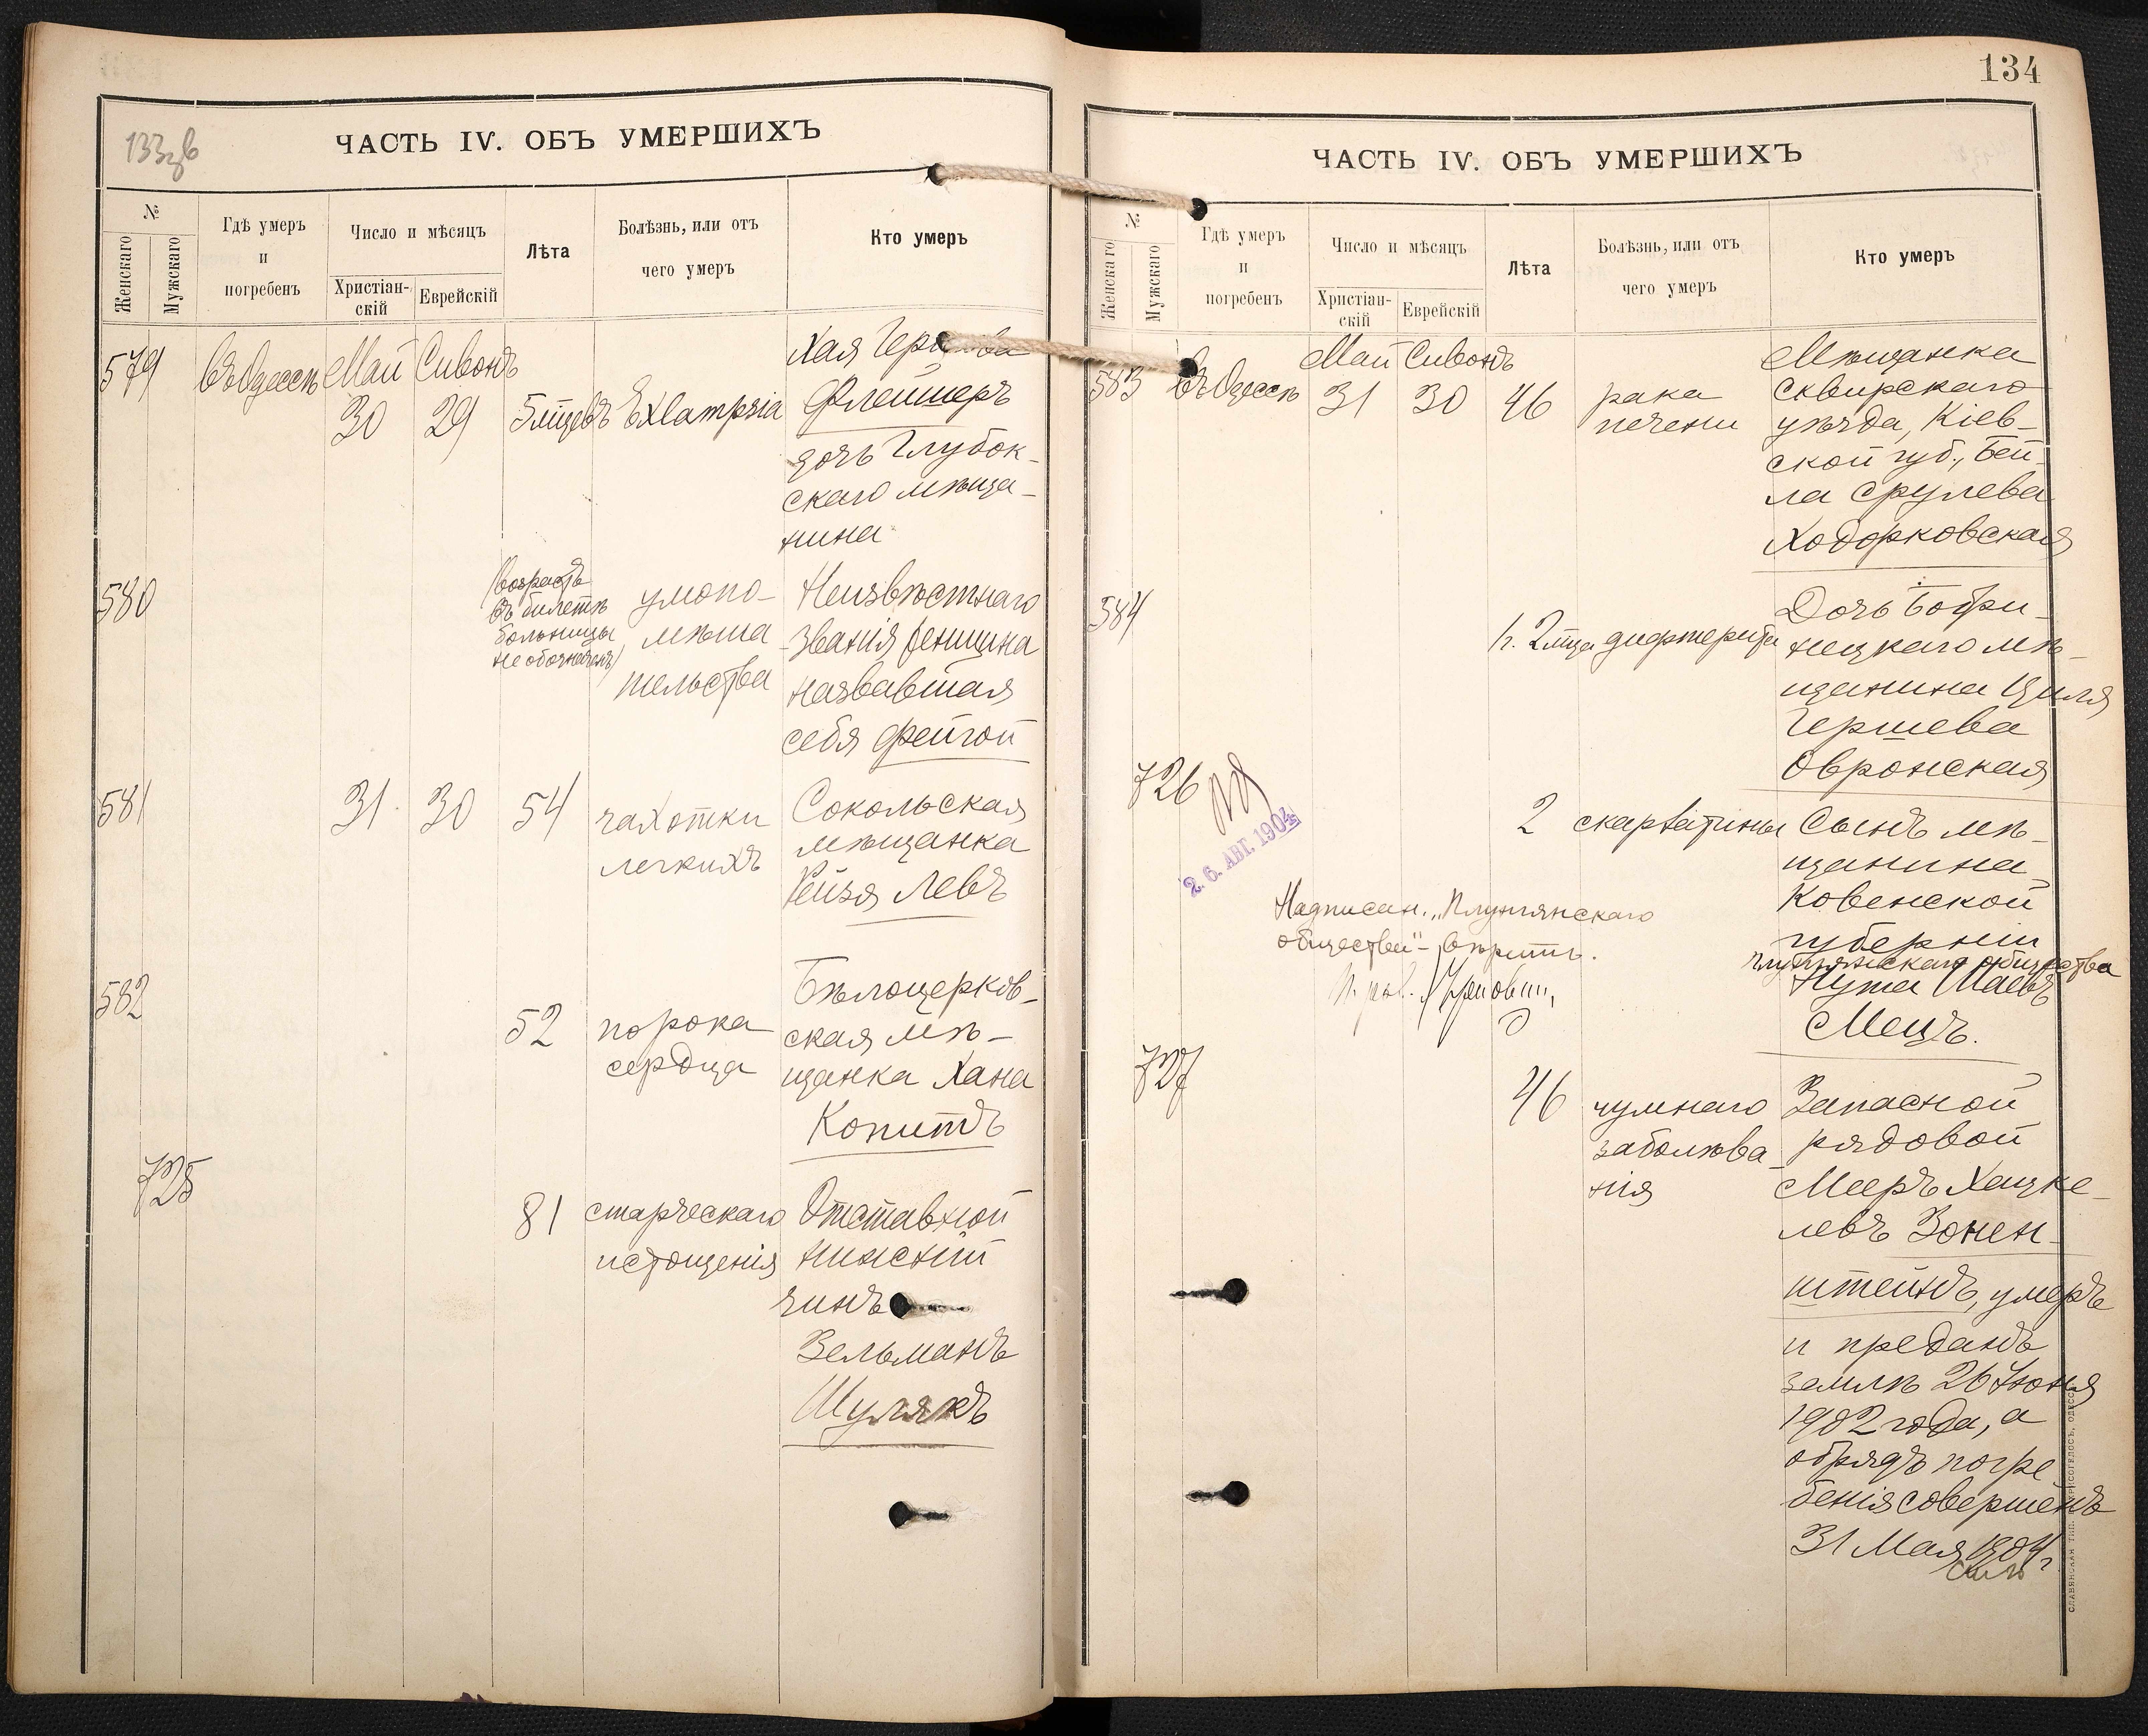 ЧАСТЬ IV. ОБЪ УМЕРШИХЪ
№
Женскаго
Мужскаго
Гдѣ умеръ
и
погребенъ
Число и мѣсяцъ
Христіан-
скій
Еврейскій
Лѣта
Болѣзнь, или отъ
чего умеръ
Кто умеръ
579
въ Одессѣ
Май
Сивонъ
30
29
5 мцевъ
Exlampsia
Хая
Флейшеръ
дочь Глубок-
скаго мѣща-
нина
580
(возрастъ
въ билетѣ
больницы
не обозначенъ)
умопо-
мѣша
тельства
Неизвѣстнаго
званія женщина
назвавшая
себя Фейгой
581
31
30
54
чахотки
легкихъ
Сокольская
мѣщанка
Рейзя Левъ
582
52
порока
сердца
Бѣлоцерков-
ская мѣ-
щанка Хана
Копитъ
725
81
старческаго
истощенія
Отставной
нижній
чинъ
Зельманъ
Шулякъ
134
ЧАСТЬ IV. ОБЪ УМЕРШИХЪ
№
Женскаго
Мужскаго
Гдѣ умеръ
и
погребенъ
Число и мѣсяцъ
Христіан-
скій
Еврейскій
Лѣта
Болѣзнь, или отъ
чего умеръ
Кто умеръ
583
въ Одессѣ
Май
Сивонъ
31
30
46
рака
печени
Мѣщанка
Сквирскаго
уѣзда, Кіев-
ской губ., Бей-
ла Срулева
Ходорковская
584
1 г. 2 мца
дифтерита
Дочь Бобри-
нецкаго мѣ-
щанина Циля
Гершева
Овронская
726
26. АВГ. 1904
2
скарлатины
Сынъ мѣ-
щанина
Ковенской
губерніи
общества
Нута Шаевъ
Мецъ.
Надписан. „Плунгянскаго
общества" - вѣрить.
727
46
чумнаго
заболѣва-
нія
Запасной
рядовой
Мееръ Хацке-
левъ Зонен-
штейнъ, умеръ
и преданъ
землѣ 26 Іюня
1902 года, а
обрядъ погре
бенія совершенъ
31 Мая 1904 г